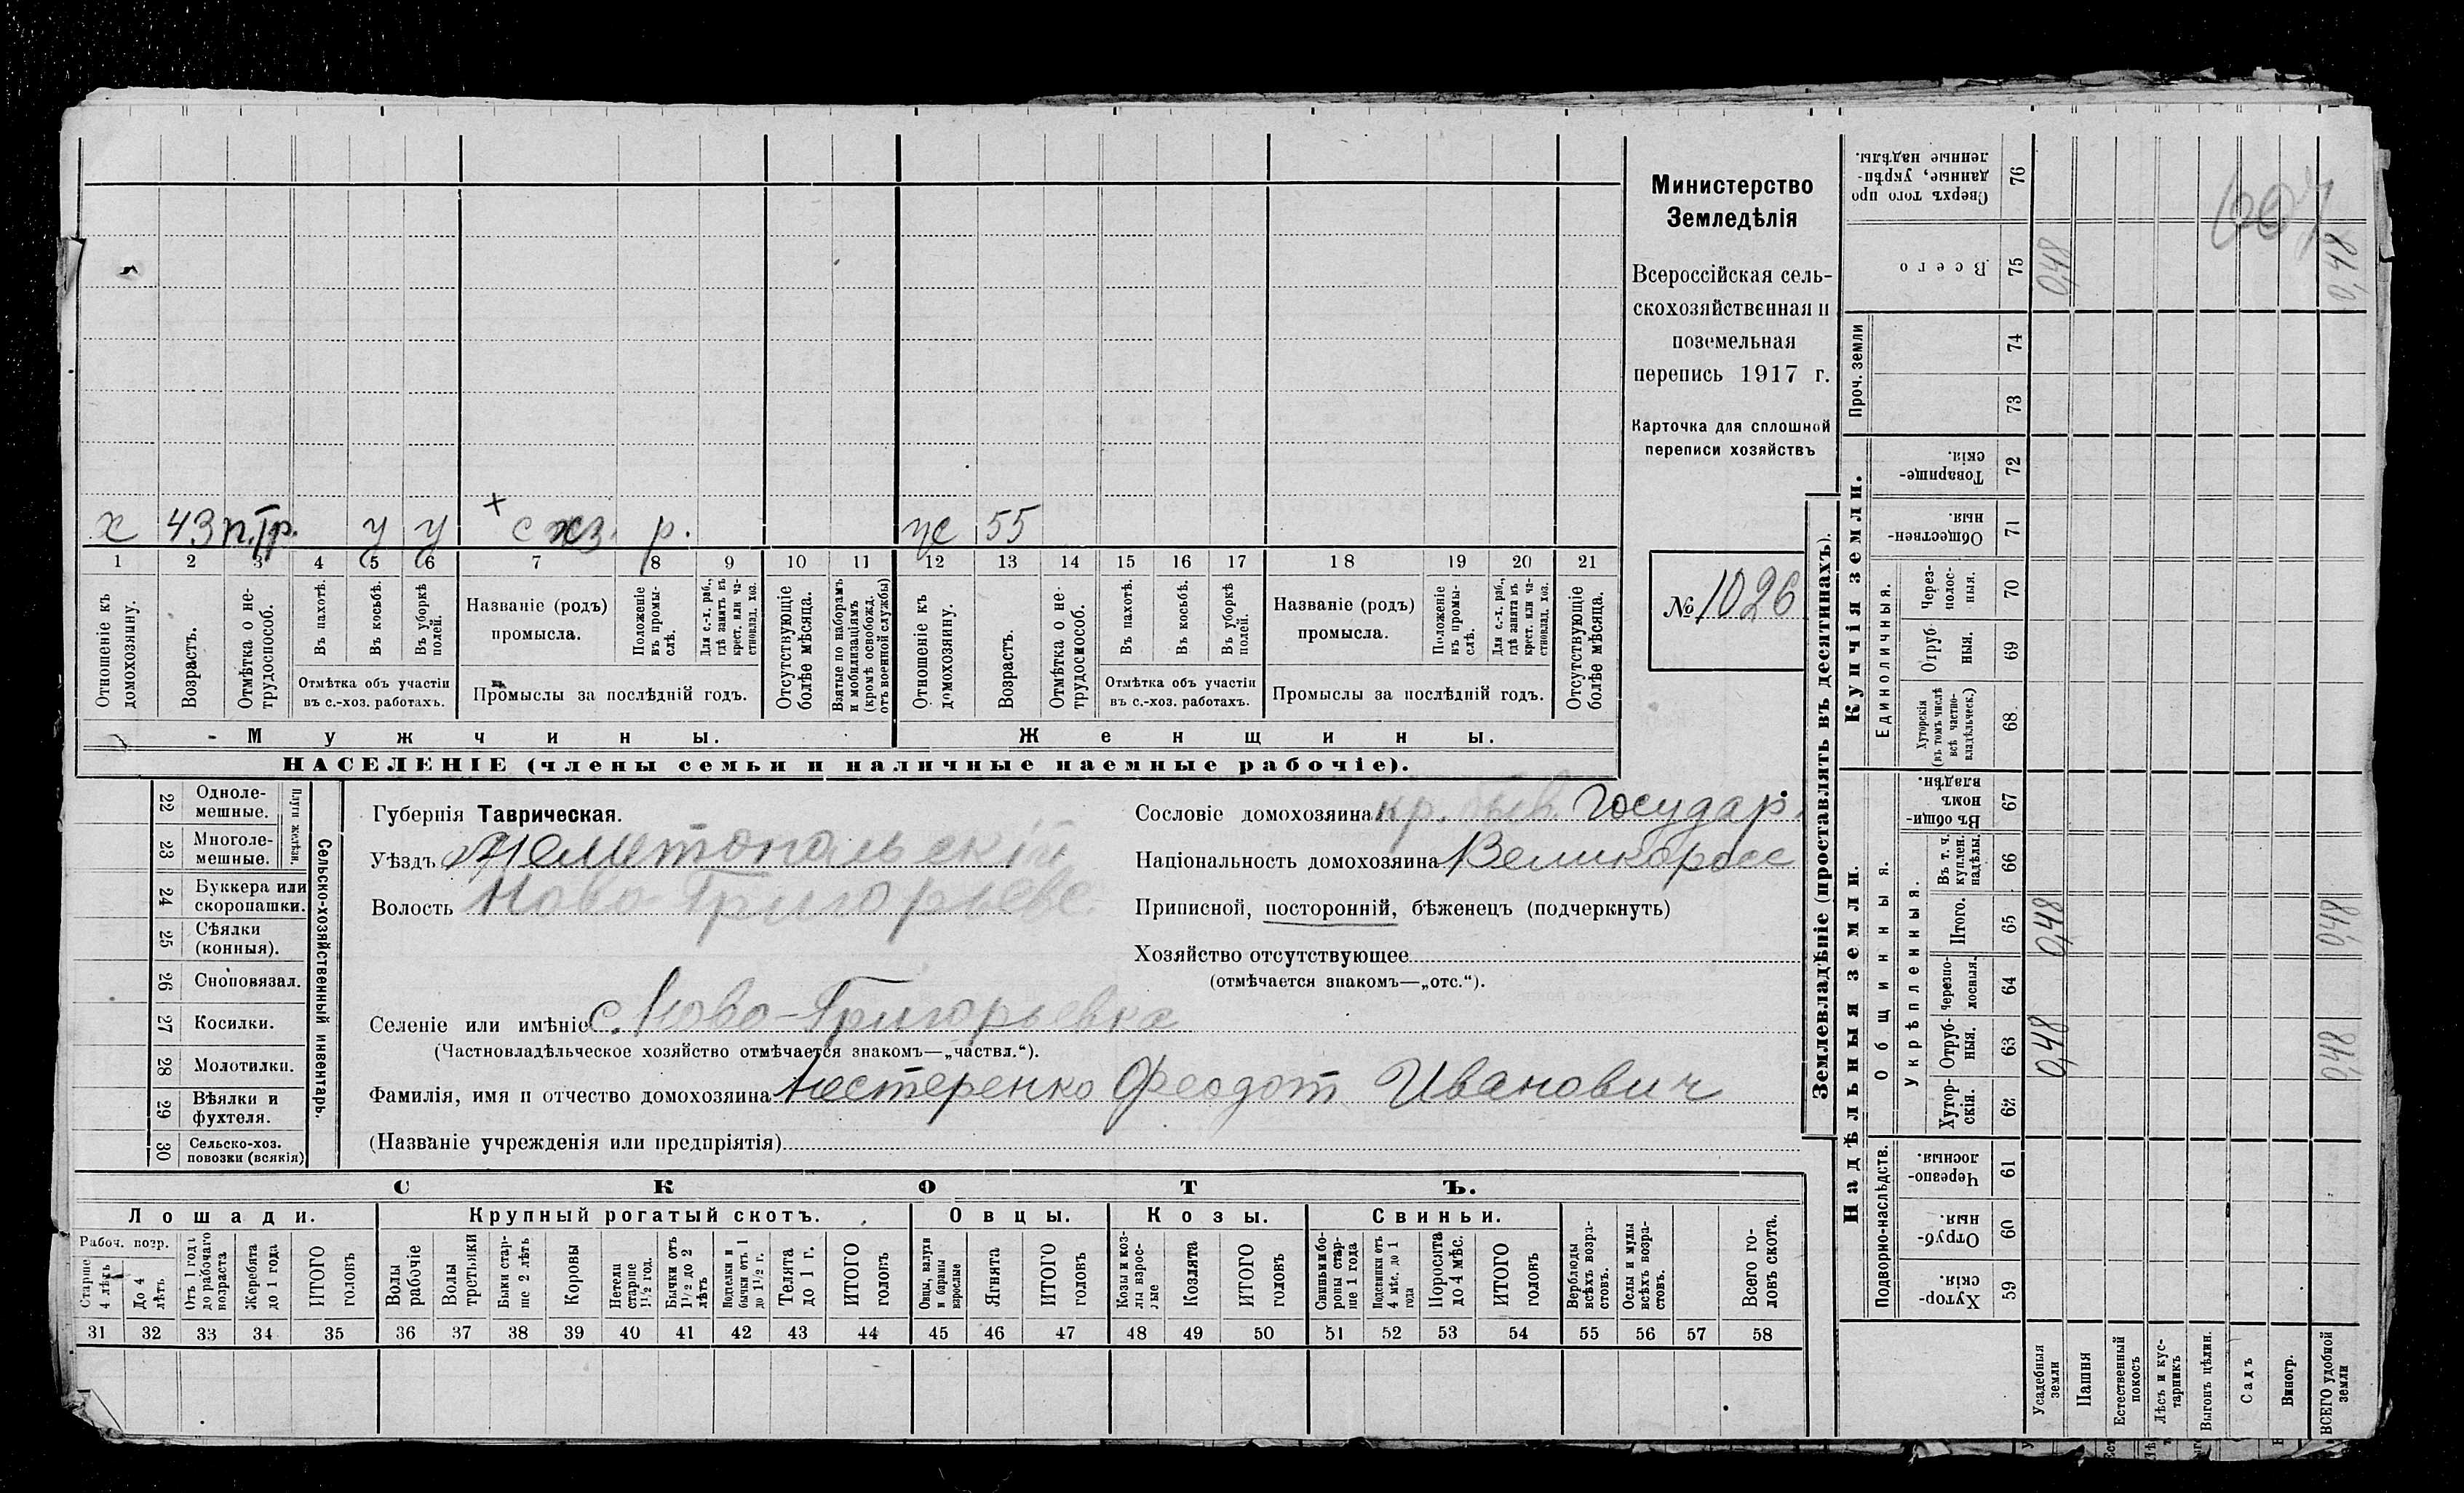 х 43 п.тр. у у + с хз. р. же 55
1 2 3 4 5 6 7 8 9 10 11 12 13 14 15 16 17 18 19 20 21
Отношеніе къ домохозяину.
Возрастъ.
Отмѣтка о не-
трудоспособ.
Въ пахотѣ.
Въ косьбѣ.
Въ уборкѣ полей.
Отмѣтка объ участіи
въ с.-хоз. работахъ.
Названіе (родъ)
промысла.
Положеніе въ промы-
слѣ.
Для с.-х. раб.,
гдѣ занятъ въ
крест. или ча-
стновлад. хоз.
Промыслы за послѣдній годъ.
Отсутствующіе
болѣе мѣсяца.
Взятые по наборамъ
и мобилизаціямъ
(кромѣ освобожд.
отъ военной службы)
Отношеніе къ
домохозяину.
Возрастъ.
Отмѣтка о не-
трудоспособ.
Въ пахотѣ.
Въ косьбѣ.
Въ уборкѣ
полей.
Отмѣтка объ участіи
въ с.-хоз. работахъ.
Названіе (родъ)
промысла.
Положеніе
въ промы-
слѣ.
Для с.-х. раб.,
гдѣ занята въ
крест. или ча-
стновлад. хоз.
Промыслы за послѣдній годъ.
Отсутствующіе
болѣе мѣсяца.
Мужчины.
Женщины.
НАСЕЛЕНІЕ (члены семьи и наличные наемные рабочіе).
Министерство
Земледѣлія
Всероссійская сель-
скохозяйственная и
поземельная
перепись 1917 г.
Карточка для сплошной
переписи хозяйствъ
№ 1026
22 Одноле-
мешные.
23 Многоле-
мешные.
Плуги желѣзн.
24 Буккера или
скоропашки.
25 Сѣялки
(конныя).
26 Сноповязал.
27 Косилки.
28 Молотилки.
29 Вѣялки и
фухтеля.
30 Сельско-хоз.
повозки (всякія)
Сельско-хозяйственный инвентарь.
Губернія Таврическая.
Уѣздъ Мелитопольскій
Волость Ново-Григорьевс.
Селеніе или имѣніе с. Ново-Григорьевка
(Частновладѣльческое хозяйство отмѣчается знакомъ—„частвл.“).
Фамилія, имя и отчество домохозяина Нестеренко Феодот Иванович
(Названіе учрежденія или предпріятія)
Сословіе домохозяина кр. быв. Государ.
Національность домохозяина Великоросс
Приписной, посторонній, бѣженецъ (подчеркнуть)
Хозяйство отсутствующее
(отмѣчается знакомъ—„отс.“).
СКОТЪ.
Лошади.
Крупный рогатый скотъ.
Овцы.
Козы.
Свиньи.
Рабоч. возр.
Старше
4 лѣтъ
До 4
лѣтъ
Отъ 1 года
до рабочаго
возраста
Жеребята
до 1 года
ИТОГО
головъ
Волы
рабочіе
Волы
третьяки
Быки стар-
ше 2 лѣтъ
Коровы
Нетели
старше
1½ год.
Бычки отъ
1½ до 2
лѣтъ
Подтелки и
бычки отъ 1
до 1½ г.
Телята
до 1 г.
ИТОГО
головъ
Овцы, валухи
и бараны
взрослые
Ягнята
ИТОГО
головъ
Козы и коз-
лы взрос-
лые
Козлята
ИТОГО
головъ
Свиньи и бо-
ровы стар-
ше 1 года
Подсвинки отъ
4 мѣс. до 1
года
Поросята
до 4 мѣс.
ИТОГО
головъ
Верблюды
всѣхъ возра-
стовъ.
Ослы и мулы
всѣхъ возра-
стовъ.
Всего го-
ловъ скота.
31 32 33 34 35 36 37 38 39 40 41 42 43 44 45 46 47 48 49 50 51 52 53 54 55 56 57 58
Землевладѣніе (проставлять въ десятинахъ).
Надѣльныя земли.
Купчія земли.
Проч. земли
Подворно-наслѣдств.
Общинныя.
Укрѣпленныя.
Единоличныя.
Хутор-
скія. 59
Отруб-
ныя. 60
Черезпо-
лосныя. 61
Хутор-
скія. 62
Отруб-
ныя. 63 0,48 0,48
Черезпо-
лосныя. 64
Итого. 65 0,48 0,48
Въ т. ч.
куплен.
надѣлы. 66
Въ общи-
номъ
владѣн. 67
Хуторскія
(въ томъ числѣ
всѣ частно-
владѣльческ.) 68
Отруб-
ныя. 69
Через-
полос-
ныя. 70
Обществен-
ныя. 71
Товарище-
скія. 72
73
74
Всего 75 0,48 0,48
Сверхъ того про
данные, укрѣп-
ленные надѣлы. 76
Усадебныя
земли
Пашня
Естественный
покосъ
Лѣсъ и кус-
тарникъ
Выгонъ цѣлин.
Садъ
Виногр.
ВСЕГО удобной
земли